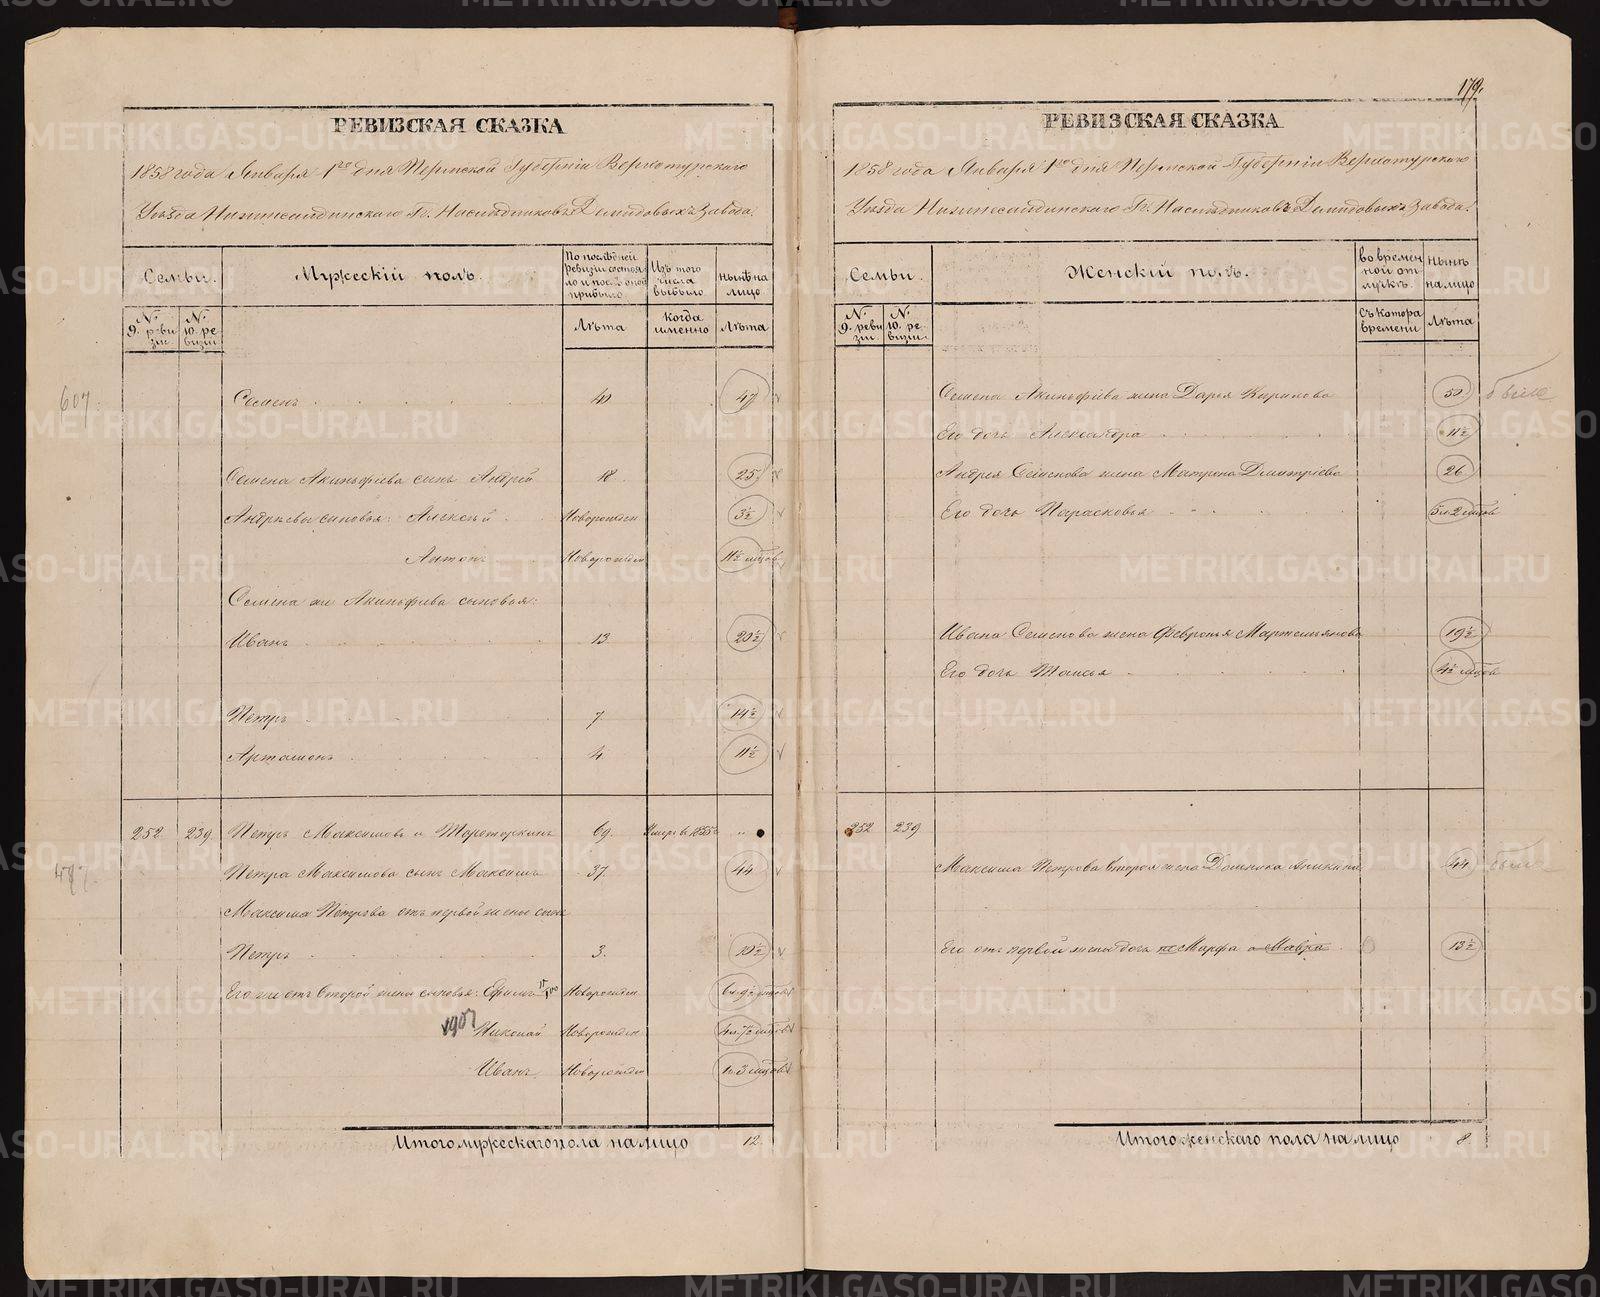 179.
РЕВИЗСКАЯ СКАЗКА
1858 года Января 1го дня Пермской Губерніи Верхотурскаго
Уѣзда Нижнесалдинскаго Гг. Наслѣдниковъ Демидовыхъ Завода.
Семьи.
Мужескій полъ.
По послѣдней ревизіи состояло и после оной прибыло
Изъ того числа выбыло
нынѣ на лицо
№ 9. ревизіи
№ 10. ревизіи
Лѣта
когда именно
Лѣта
607
Семенъ 40 47
Семена Акинфіева сынъ Андрей 18 25
Андрѣевы сыновья: Алексѣй Новорожден 3½
Антонъ Новорожден 11½ мцов
Семена же Акинфіева сыновья:
Иванъ 13 20½
Петръ 7 14½
Артамонъ 4 11½
252 239 Петръ Максимовъ 69. Умеръ в 1855
487
Петра Максимова сынъ Максимъ 37. 44
Максима Петрова отъ первой жены сынъ
Петръ 3. 10½
Его же отъ второй жены сыновья: Новорожден
Николай Новорожден
Иванъ Новорожден
Итого мужескаго пола на лицо 12.
РЕВИЗСКАЯ СКАЗКА
1858 года Января 1го дня Пермской Губерніи Верхотурскаго
Уѣзда Нижнесалдинскаго Гг. Наслѣдниковъ Демидовыхъ Завода.
Семьи.
Женскій полъ.
во временной отлучкѣ.
Нынѣ на лицо
№ 9. ревизіи
№ 10. ревизіи.
Съ котора времени
Лѣта
Семена Акинфіева жена Дарья Кирилова 50
Его дочь Александра 11½
Андрея Семенова жена Матрона Дмитріева 26
Его дочь Парасковья 5 л 2 мцов
Ивана Семенова жена Февронья Мартемьянова 19½
Его дочь Таисья 4½ мцов
252 239
Максима Петрова вторая жена Домника Аникина 44
Его отъ первой жены дочь Марфа Мавра 13½
Итого женскаго пола на лицо 8.
METRIKI.GASO-URAL.RU